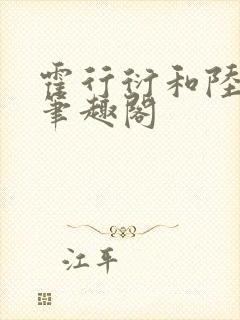 霍行衍和陸
筆趣閣
江平